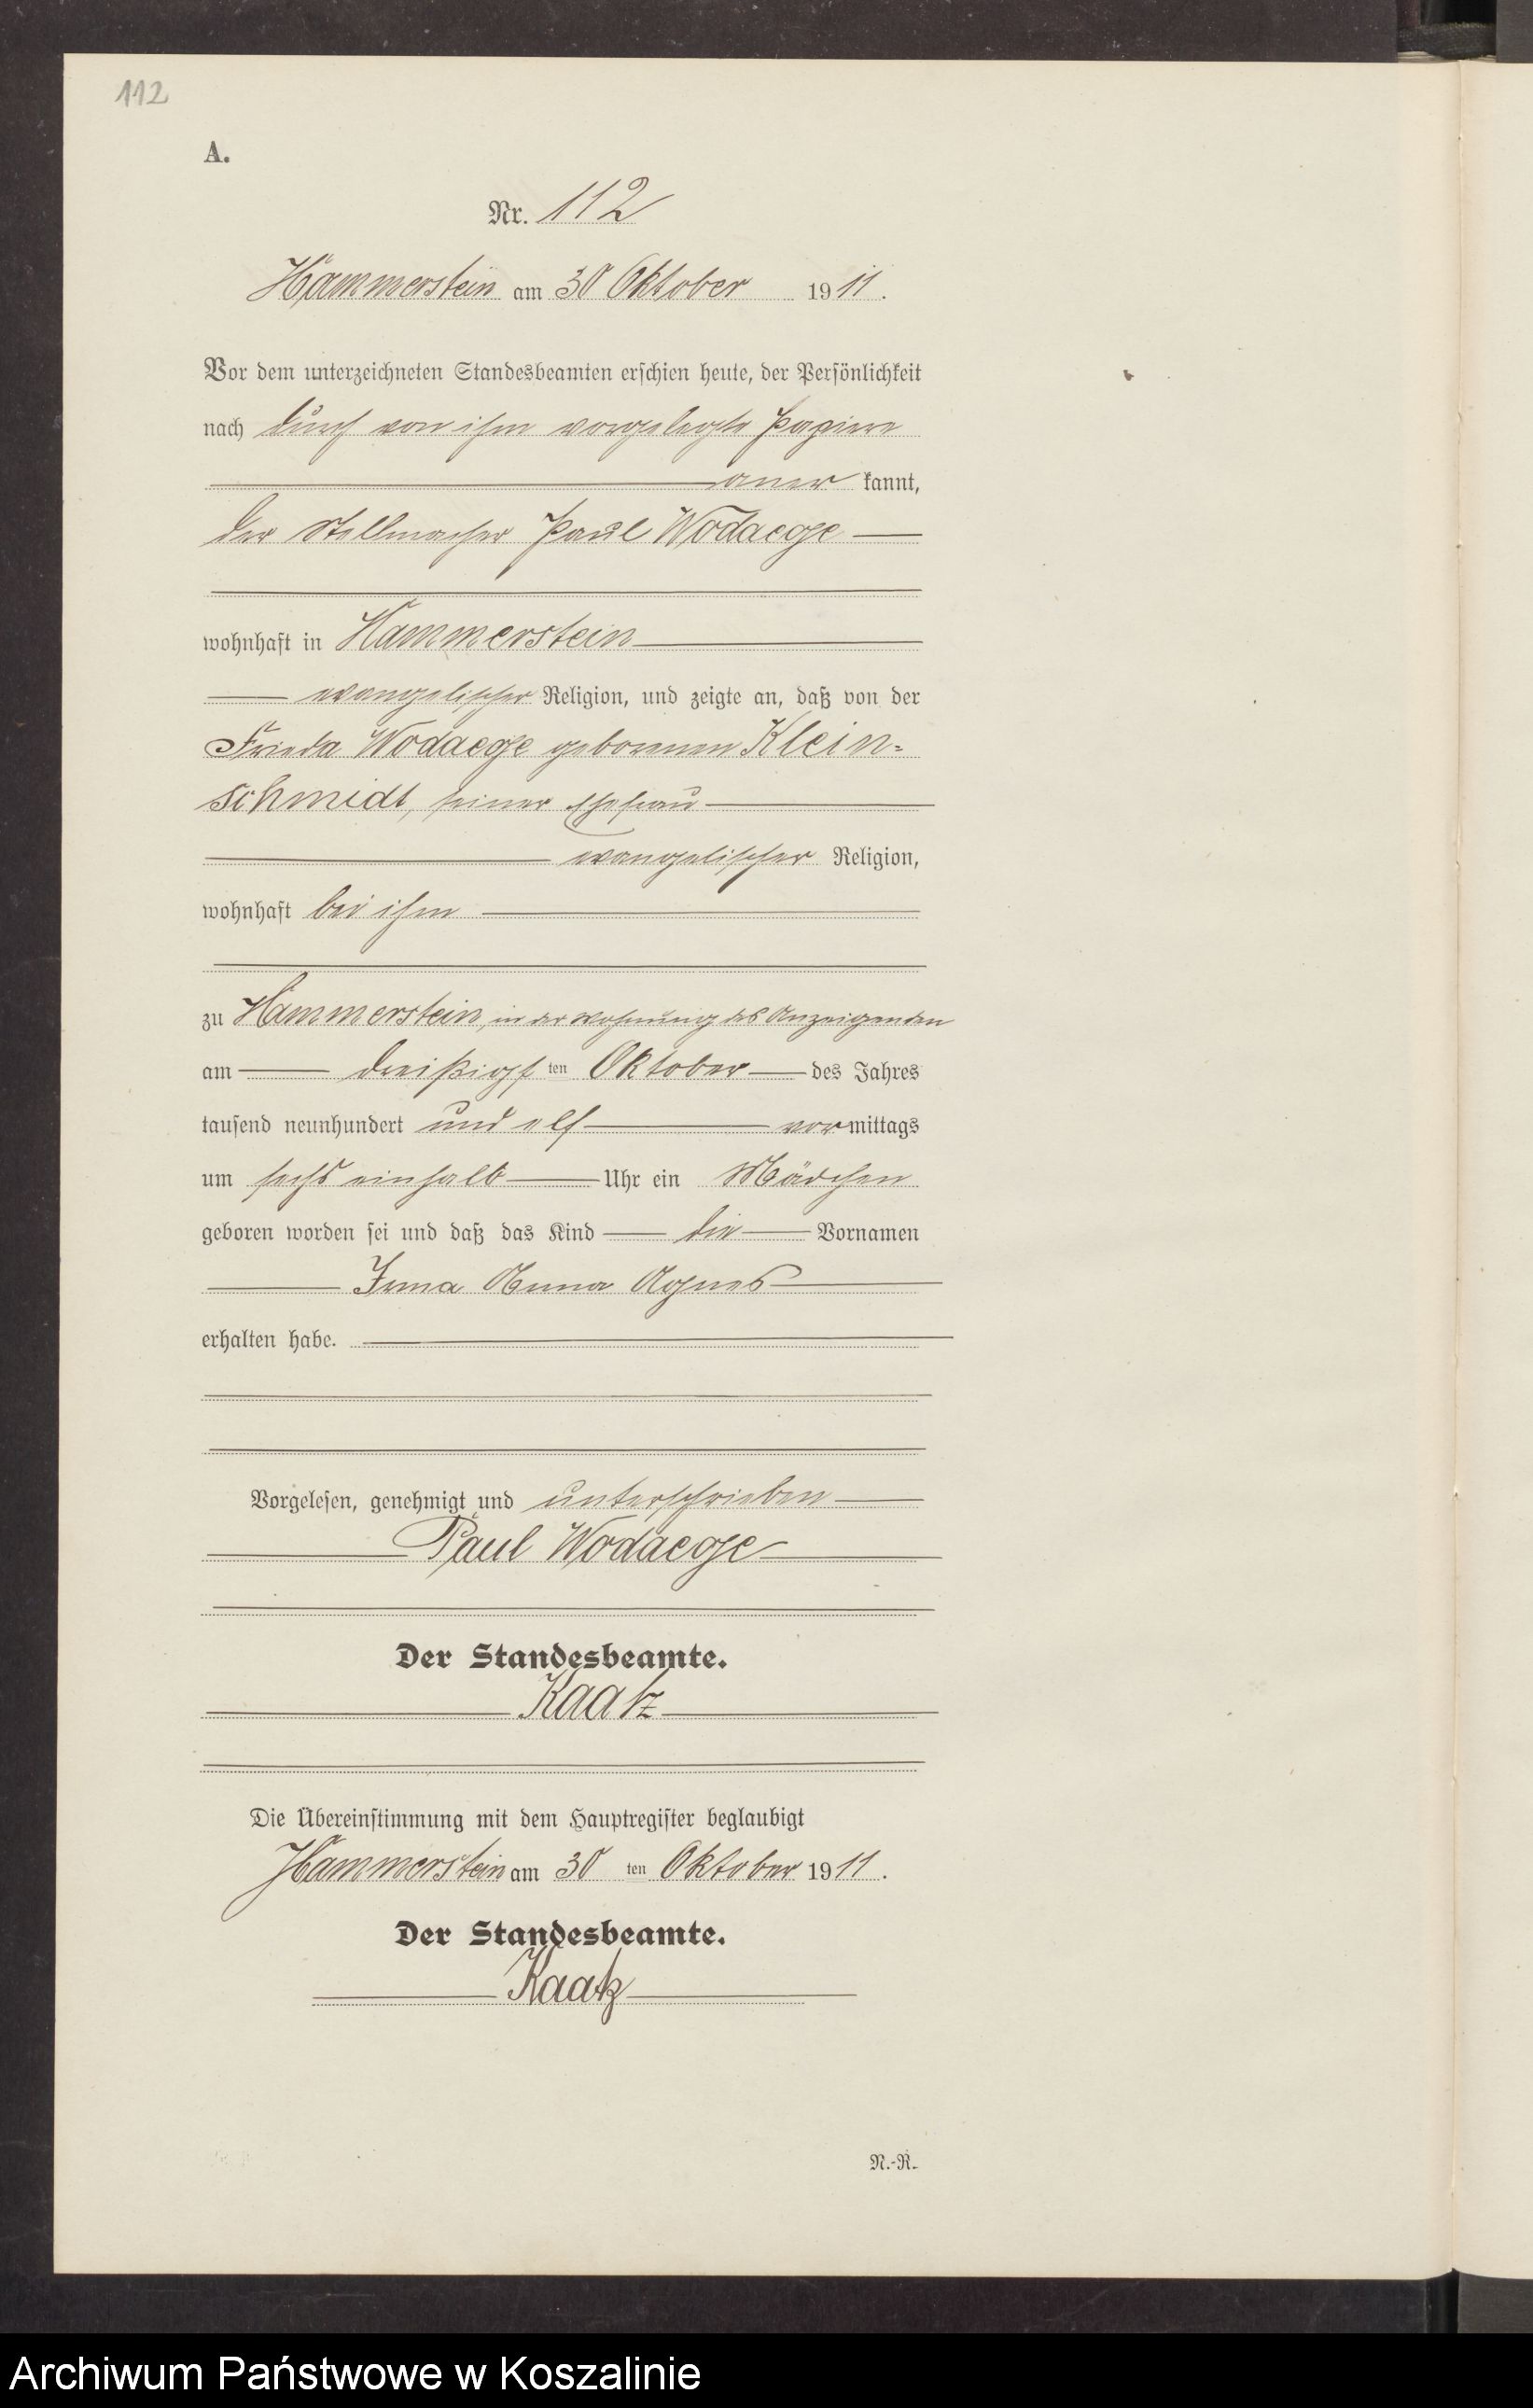 112
A.
Nr. 112
Hammerstein am 30 Oktober 1911.
Vor dem unterzeichneten Standesbeamten erschien heute, der Persönlichkeit
nach durch von ihm vorgelegte Papiere
aner kannt,
der Stellmacher Paul Wodaege
wohnhaft in Hammerstein
evangelischer Religion, und zeigte an, daß von der
Frieda Wodaege geborenen Klein-
schmidt, seiner Ehefrau
evangelischer Religion,
wohnhaft bei ihm
zu Hammerstein, in der Wohnung des Anzeigenden
am dreißigsten Oktober des Jahres
tausend neunhundert und elf vormittags
um sechs einhalb Uhr ein Mädchen
geboren worden sei und daß das Kind die Vornamen
Anna Agnes
erhalten habe.
Vorgelesen, genehmigt und unterschrieben
Paul Wodaege
Der Standesbeamte.
Kaatz
Die Übereinstimmung mit dem Hauptregister beglaubigt
Hammerstein am 30 ten Oktober 1911.
Der Standesbeamte.
Kaatz
N.-R.
Archiwum Państwowe w Koszalinie